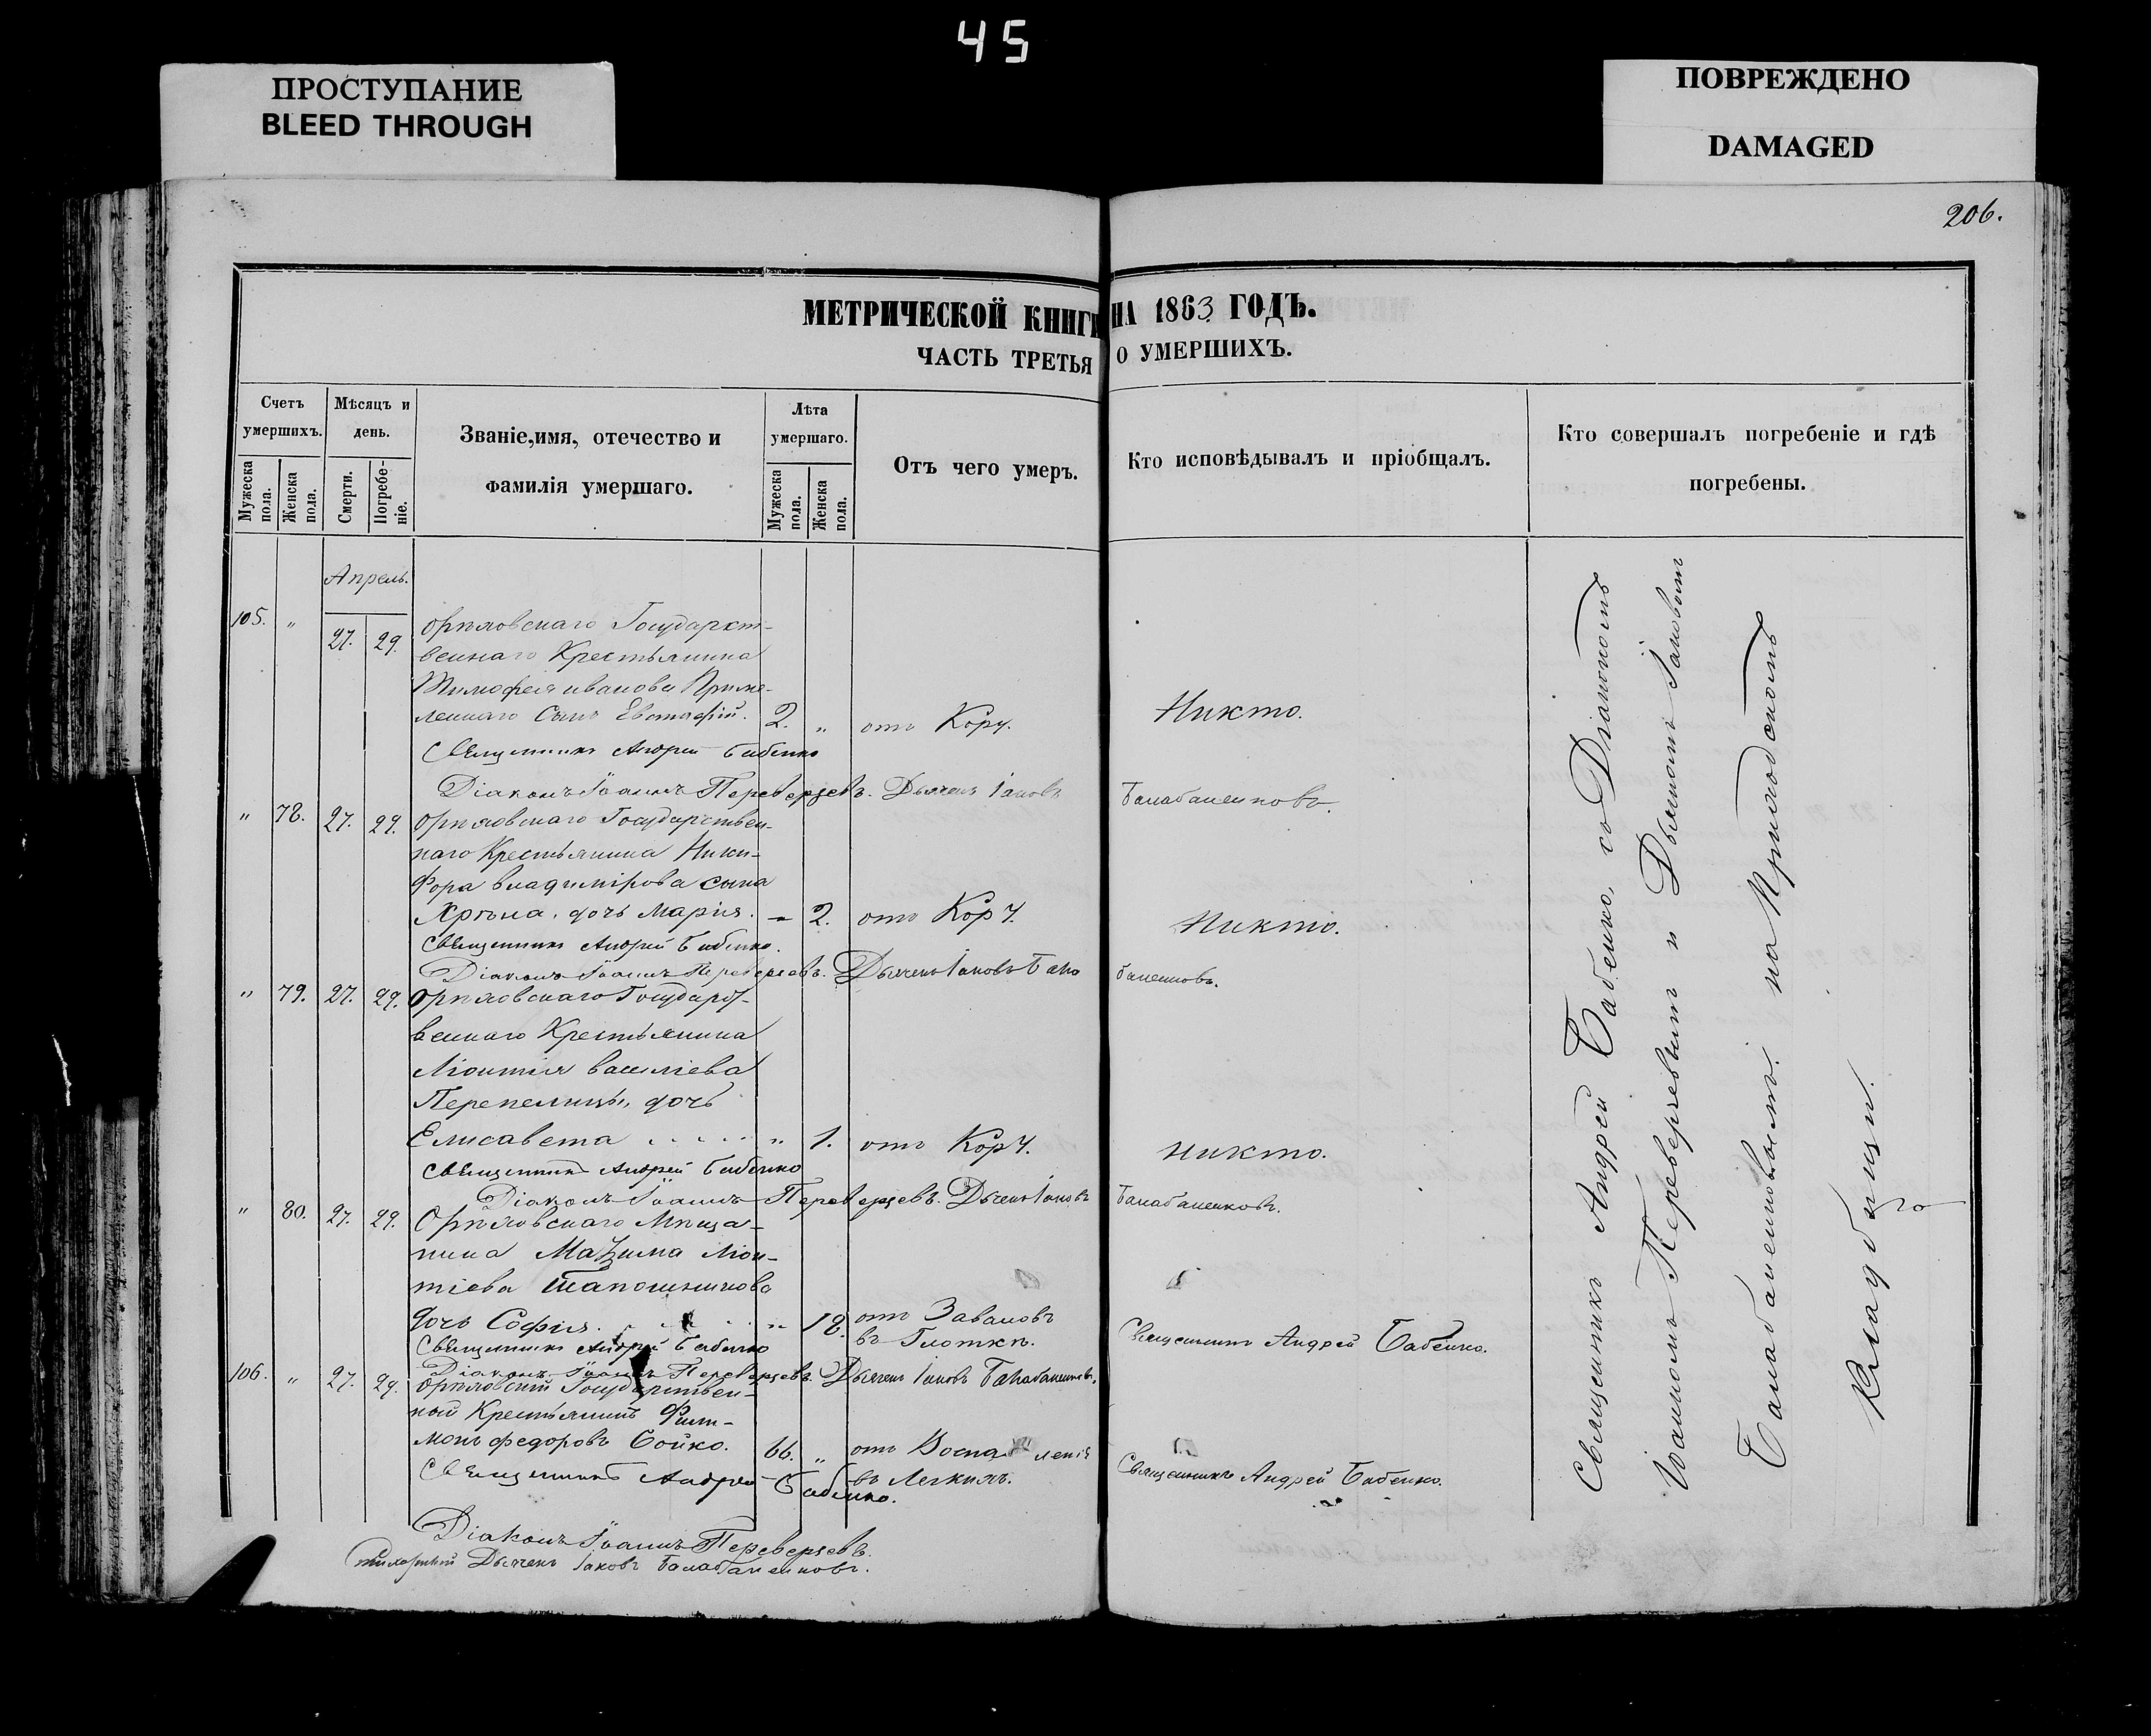 45
ПРОСТУПАНИЕ
BLEED THROUGH
ПОВРЕЖДЕНО
DAMAGED
206.
МЕТРИЧЕСКОЙ КНИГИ НА 1863 ГОДЪ.
ЧАСТЬ ТРЕТЬЯ О УМЕРШИХЪ.
Счетъ умершихъ.
Мужеска пола.
Женска пола.
Мѣсяцъ и день.
Смерти.
Погребе-ніе.
Званіе,имя, отечество и
фамилія умершаго.
Лѣта умершаго.
Мужеска пола.
Женска пола.
Отъ чего умеръ.
Кто исповѣдывалъ и пріобщалъ.
Кто совершалъ погребеніе и гдѣ
погребены.
Апрель.
105. " 27. 29. Орѣховскаго Государст-
веннаго Крестьянина
Тимофея иванова
леннаго Сынъ Евстафій. 2. " отъ Кору. Никто.
Священникъ Андрей Бабенко
Діаконъ Іоаннъ Переверзевъ. Дьячекъ Іаковъ Балабаненковъ.
" 78. 27. 29. Орѣховскаго Государствен-
наго Крестьянина Ники-
фора владимірова сына
дочь Марія. - 2. отъ Кору. Никто.
Священникъ Андрей Бабенко.
Діаконъ Іоаннъ Переверзевъ. Дьячекъ Іаковъ Бала баненковъ.
" 79. 27. 29. Орѣховскаго Государст-
веннаго Крестьянина
Ліонтія василіева
Перепелицы, дочь
Елисавета . . . . . " 1. отъ Кору. никто.
Священникъ Андрей Бабенко
Діаконъ Іоаннъ Переверзевъ. Дьячекъ Іаковъ Балабаненковъ.
" 80. 27. 29. Орѣховскаго Мѣща-
нина Маѯима Ліон-
тіева Шапошникова
дочь Софія. " 18. отъ Заваловъ
въ Глоткѣ. Священникъ Андрей Бабенко.
Священникъ Андрей Бабенко
Діаконъ Іоаннъ Переверзевъ. Дьячекъ Іаковъ Балабаненковъ.
106. " 27. 29. Орѣховскій Государствен-
ный Крестьянинъ Фили-
монъ федоровъ Бойко. 66. " отъ Воспаленія
въ Легкихъ. Священникъ Андрей Бабенко.
Священникъ Андрей Бабенко.
Діаконъ Іоаннъ Переверзевъ.
Дьячекъ Іаковъ Балабаненковъ.
Священникъ Андрей Бабенко, со Діакономъ
Іоанномъ Переверзевымъ и Дьячкомъ Іаковомъ
Балабаненковымъ. на Приходскомъ
Кладбищи.